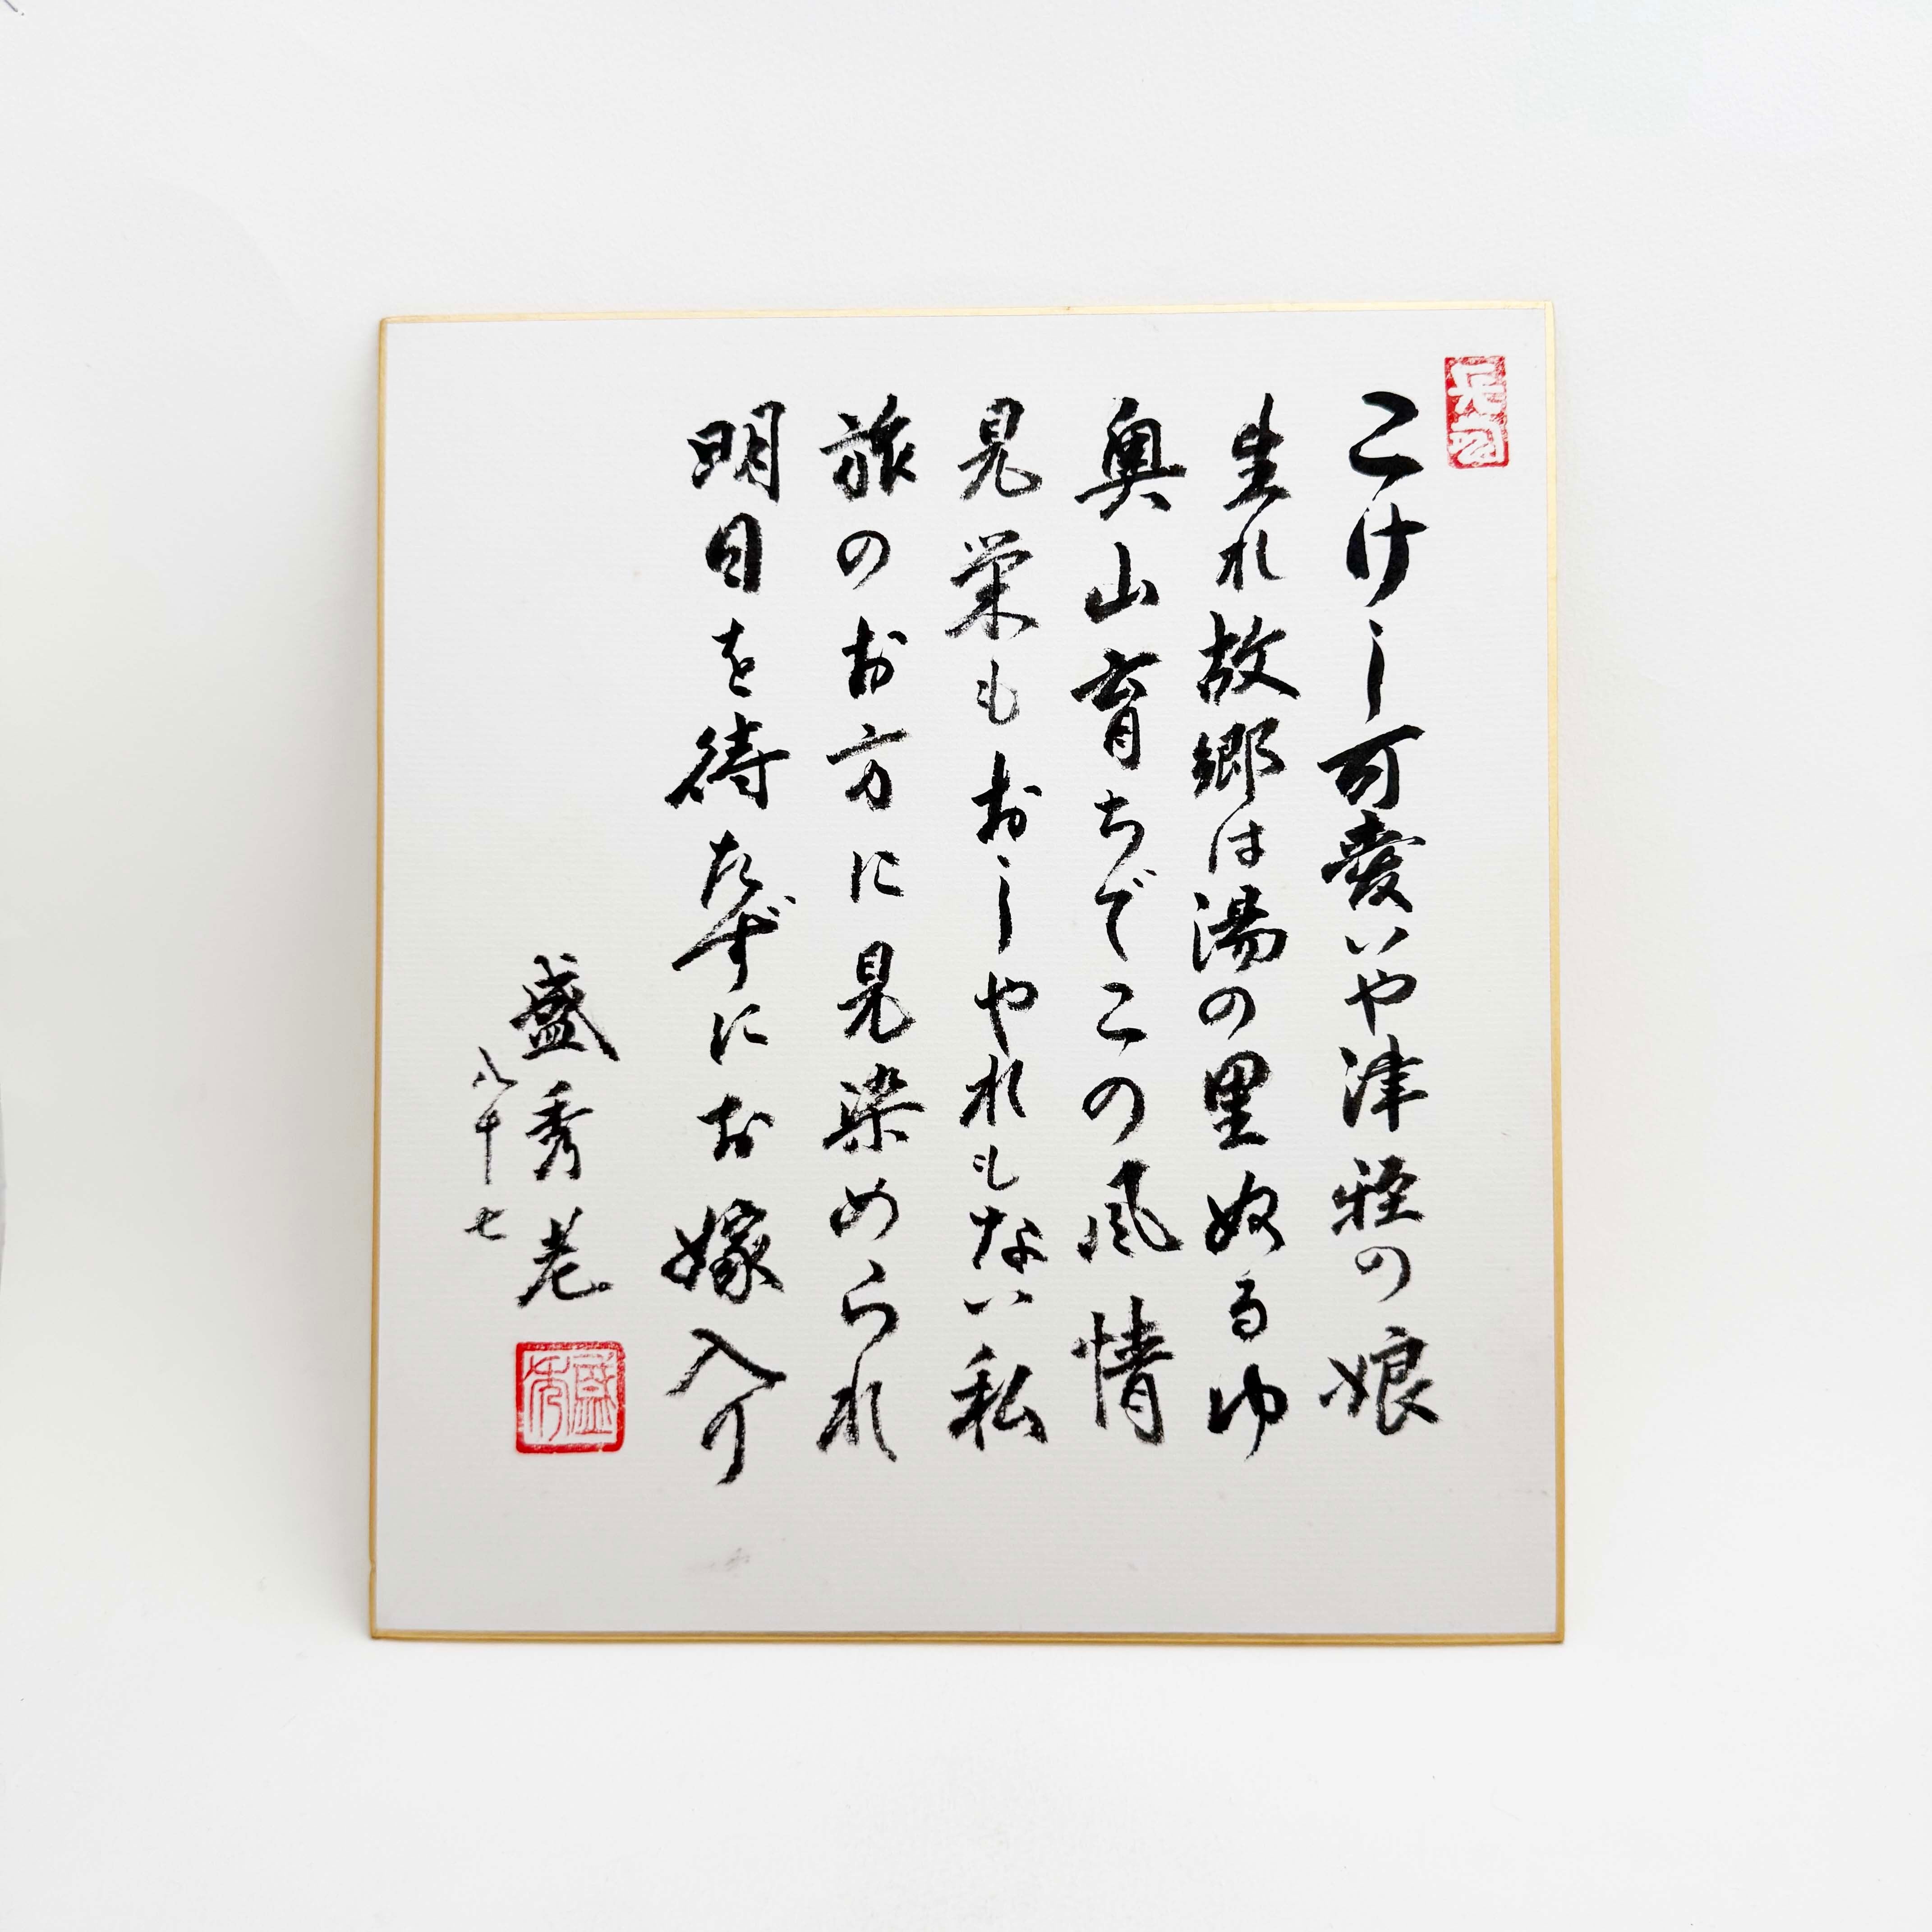 こけし可愛いや津軽の娘
生れ故郷は湯の里奴るゆ
奥山育ちでこの風情
見栄もおしやれもない私
旅のお方に見染められ
明日を待たずにお嫁入り
盛秀老
八十七
盛秀